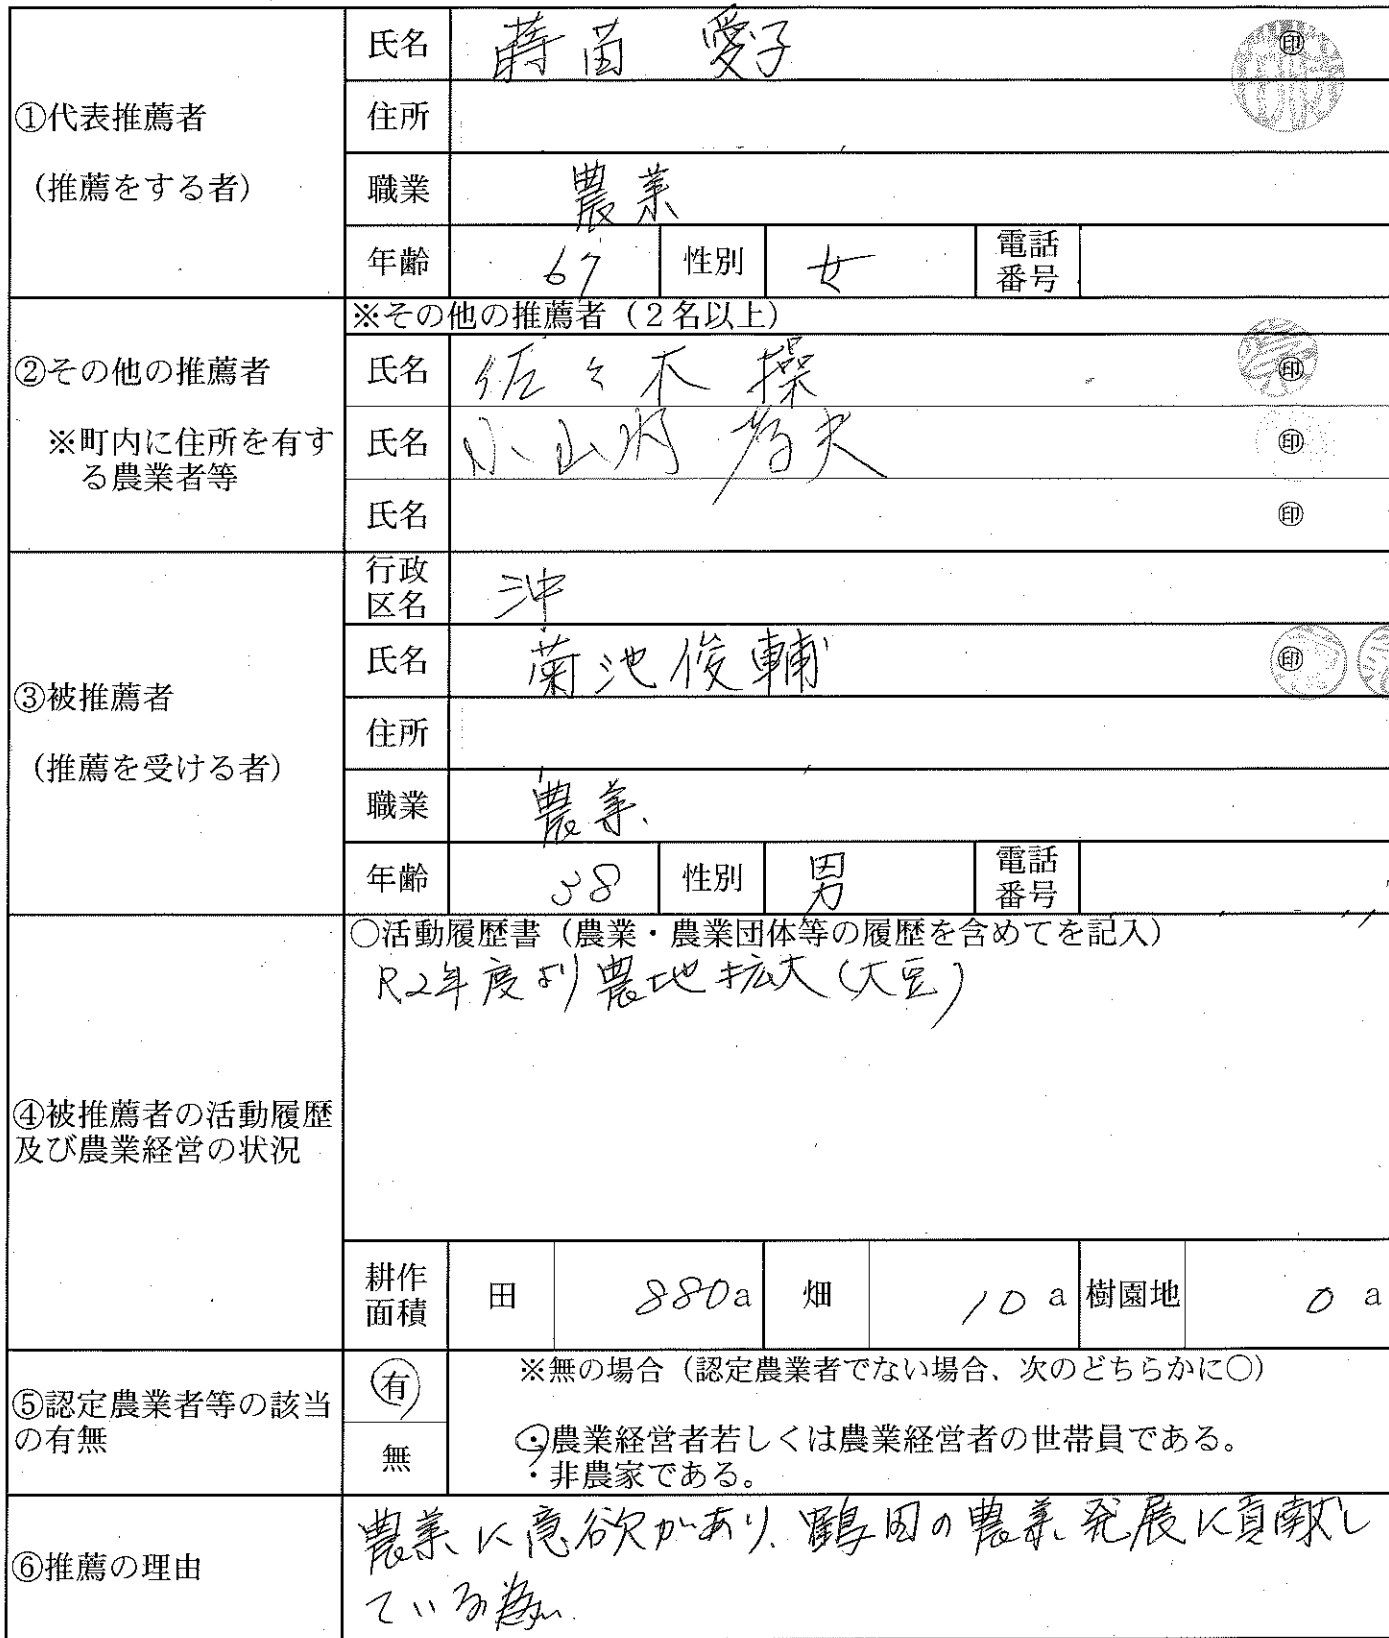 ①代表推薦者
(推薦をする者)
氏名 蒔苗 愛子 ㊞
住所
職業 農業
年齢 67 性別 女 電話番号
②その他の推薦者
※町内に住所を有する農業者等
※その他の推薦者(2名以上)
氏名 佐々木 操 ㊞
氏名 小山内 ㊞
氏名 ㊞
③被推薦者
(推薦を受ける者)
行政区名 沖
氏名 菊池俊輔 ㊞
住所
職業 農業
年齢 38 性別 男 電話番号
④被推薦者の活動履歴
及び農業経営の状況
○活動履歴書(農業・農業団体等の履歴を含めてを記入)
R2年度より農地拡大(大豆)
耕作面積 田 880a 畑 10a 樹園地 0a
⑤認定農業者等の該当
の有無
有
無
※無の場合(認定農業者でない場合、次のどちらかに○)
・農業経営者若しくは農業経営者の世帯員である。
・非農家である。
⑥推薦の理由
農業に意欲があり、鶴田の農業発展に貢献し
ている為